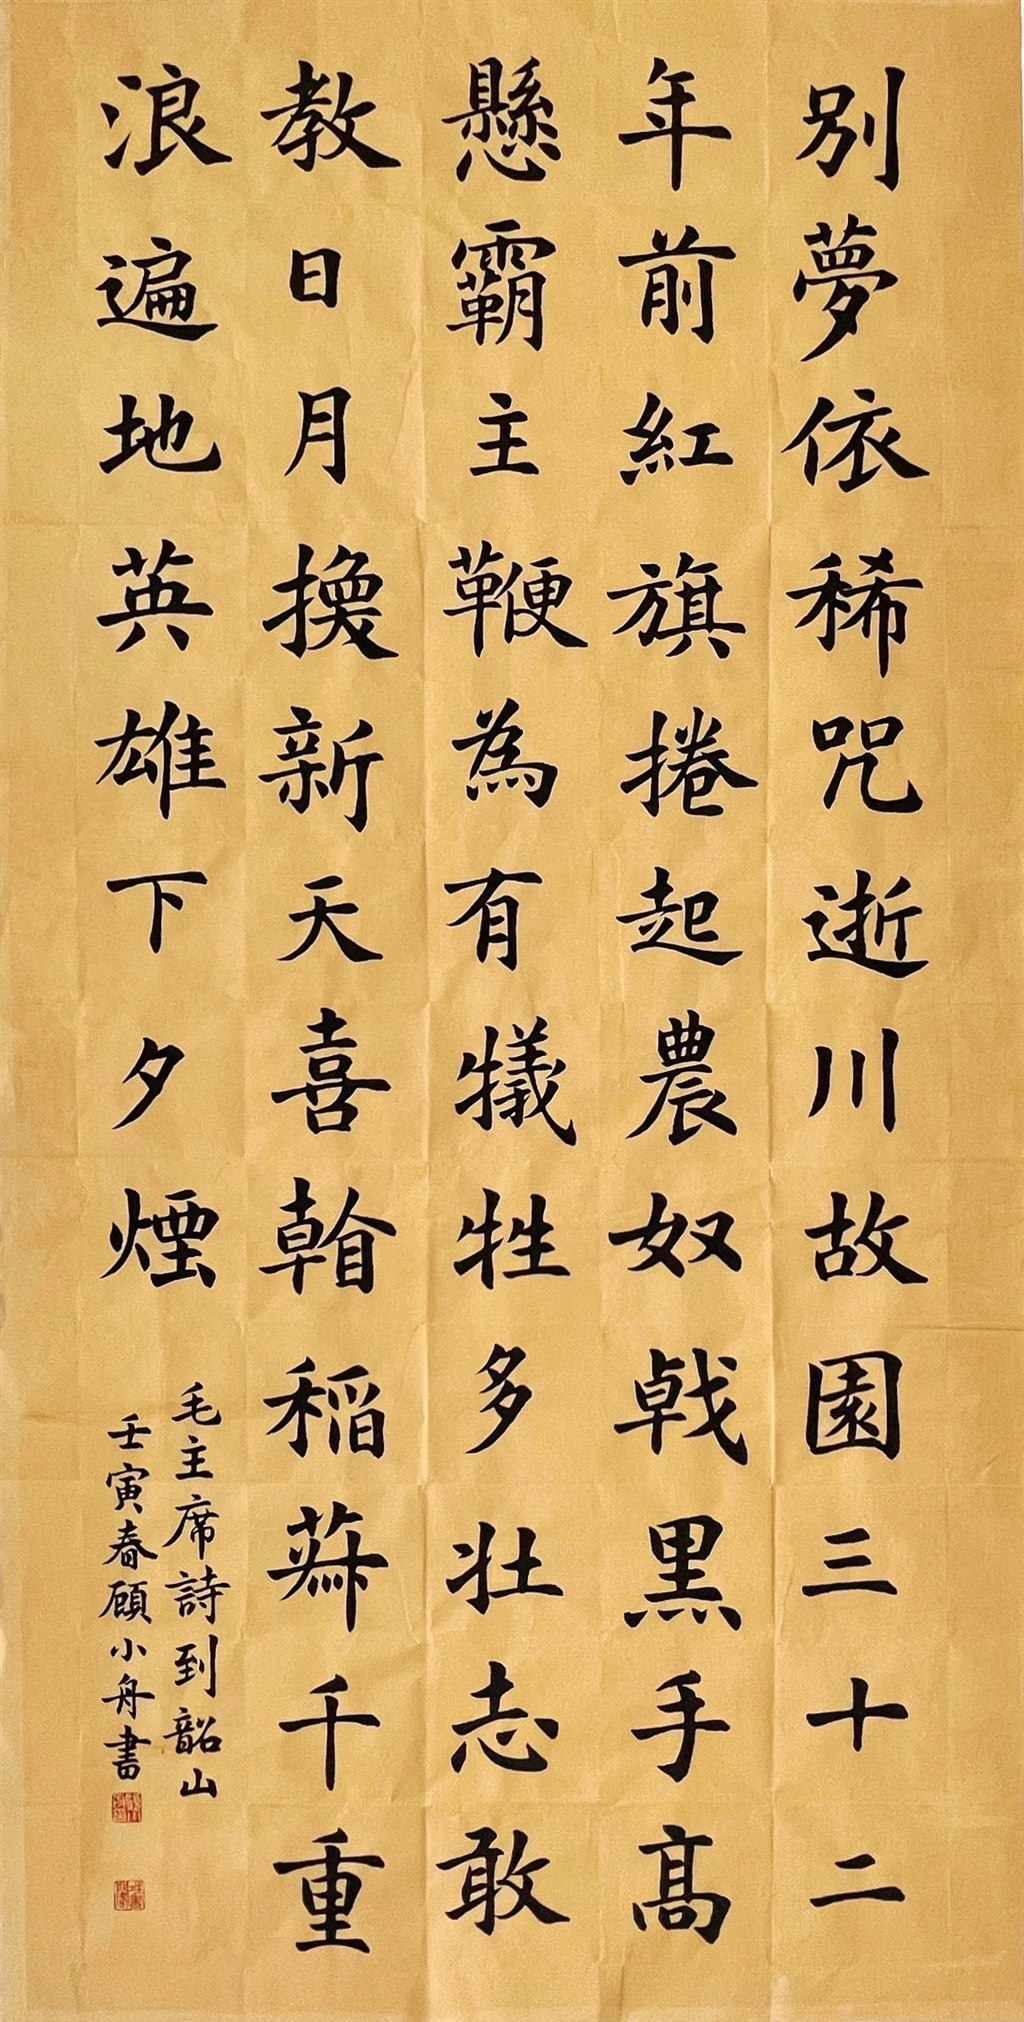 別夢依稀咒逝川故園三十二
年前紅旗捲起農奴戟黑手髙
懸霸主鞭為有犧牲多壯志敢
教日月換新天喜看稻菽千重
浪遍地英雄下夕煙
毛主席詩到韶山
壬寅春顧小舟書